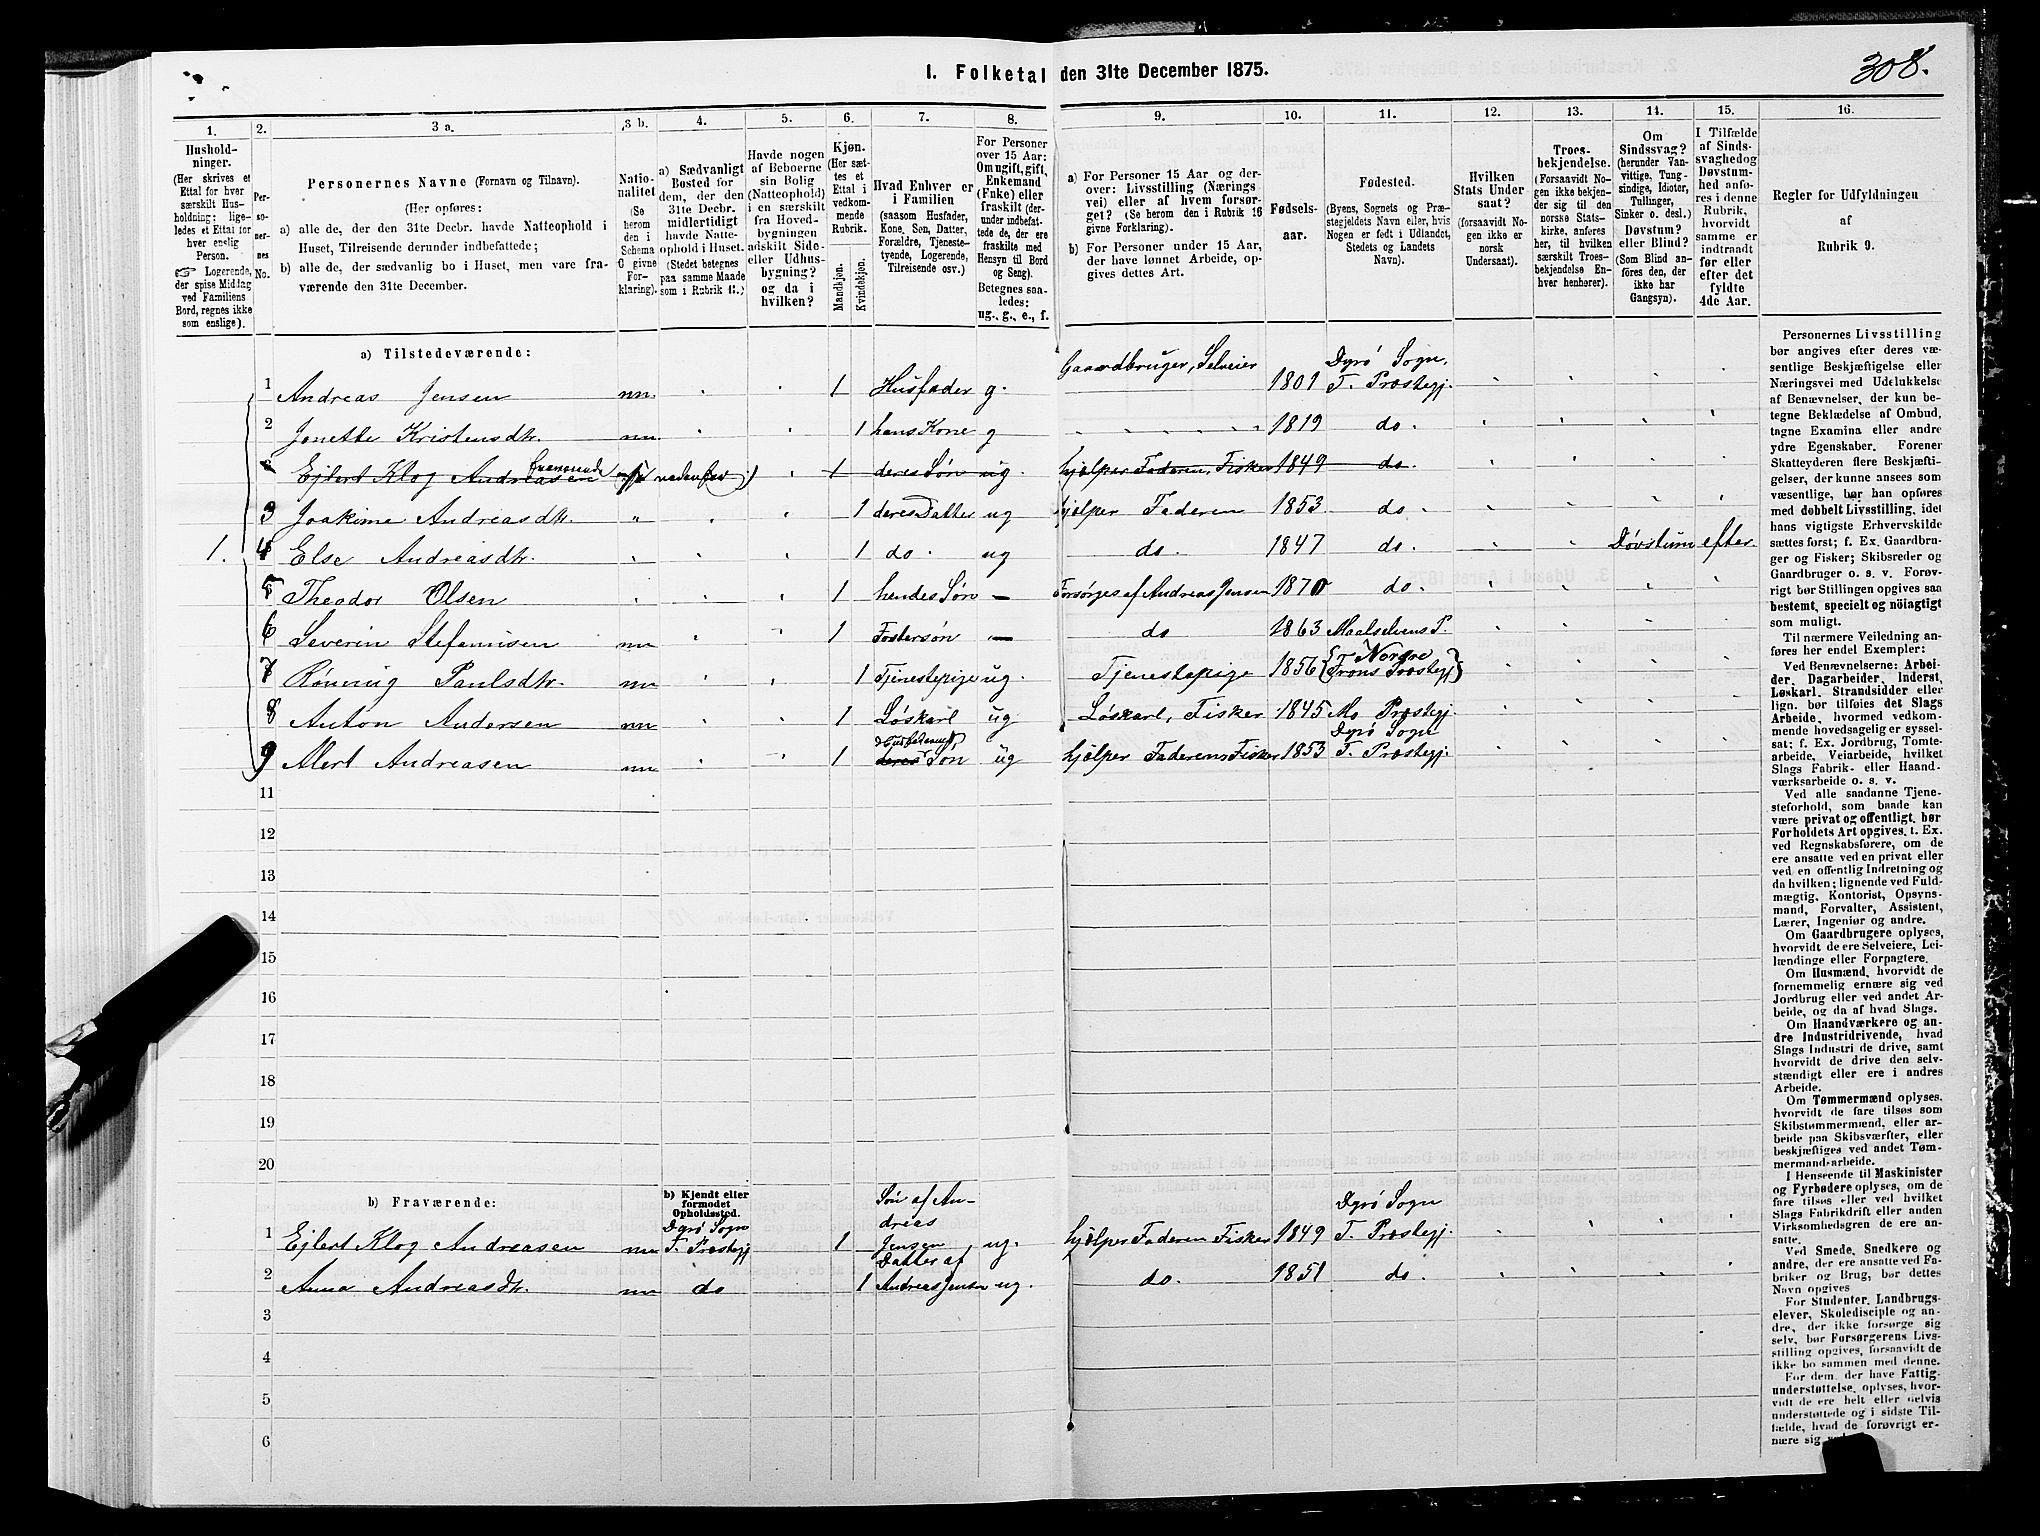 I. Folketal den 31te December 1875.
308.
1. 2. 3 a. 3 b. 4. 5. 6. 7. 8. 9. 10. 11. 12. 13. 14. 15. 16.
Hushold-
ninger.
(Her skrives et
Ettal for hver
særskilt Hus-
holdning; lige-
ledes et Ettal
for hver enslig
Person.
☞ Logerende,
der spise Middag
ved Familiens
Bord, regnes ikke
som enslige).
Per-
so-
ner-
nes
No.
Personernes Navne (Fornavn og Tilnavn).
(Her opføres:
a) alle de, der den 31te Decbr. havde Natteophold i
Huset, Tilreisende derunder indbefattede;
b) alle de, der sædvanlig bo i Huset, men vare fra-
værende den 31te December.
Natio-
nalitet
(Se
herom
den i
Schema
C givne
For-
klaring).
a) Sædvanligt
Bosted for
dem, der den
31te Decbr.
midlertidigt
havde Natte-
ophold i Huset.
(Stedet betegnes
paa samme Maade
som i Rubrik 11.)
Havde nogen
af Beboerne
sin Bolig
(Natteophold)
i en særskilt
fra Hoved-
bygningen
adskilt Side-
eller Udhus-
bygning?
og da i
hvilken?
Kjøn.
(Her sæt-
tes et
Ettal i
vedkom-
mende
Rubrik.
Mandkjøn.
Kvindekjøn.
Hvad Enhver er
i Familien
(saasom Husfader,
Kone, Søn, Datter,
Forældre, Tjeneste-
tyende, Logerende,
Tilreisende osv.)
For Personer
over 15 Aar:
Om ugift, gift,
Enkemand
(Enke) eller
fraskilt (der-
under indbefat-
tede de, der ere
fraskilte med
Hensyn til Bord
og Seng).
Betegnes saa-
ledes:
ug., g., e., f.
a) For Personer 15 Aar og der-
over: Livsstilling (Nærings
vei) eller af hvem forsør-
get? (Se herom den i Rubrik 16
givne Forklaring).
b) For Personer under 15 Aar,
der have lønnet Arbeide, op-
gives dettes Art.
Fødsels-
aar.
Fødested.
(Byens, Sognets og Præ-
stegjeldets Navn eller, hvis
Nogen er født i Udlandet,
Stedets og Landets
Navn).
Hvilken
Stats Under
saat?
(forsaavidt No-
gen ikke er
norsk
Undersaat).
Troes-
bekjendelse.
(Forsaavidt No-
gen ikke bekjen-
der sig til den
norske Stats-
kirke, anføres
her, til hvilken
særskilt Troes-
bekjendelse En-
hver henhører).
Om
Sindssvag?
(herunder Van-
vittige, Tung-
sindige, Idioter,
Tullinger,
Sinker o. desl.)
Døvstum?
eller Blind?
(Som Blind an-
føres den, der
ikke har
Gangsyn).
I Tilfælde
af Sinds-
svaghed og
Døvstum-
hed anfø-
res i denne
Rubrik,
hvorvidt
samme er
indtraadt
før eller
efter det
fyldte
4de Aar.
Regler for Udfyldningen
af
Rubrik 9.
a) Tilstedeværende:
1 Andreas Jensen nn. 1 Husfader g. Gaardbruger, Selveier 1801 Dyrø Sogn, T. Præstegj.
2 Jonette Kristensdtr. nn. 1 hans Kone g 1819 do.
Ejlert Klog Andreasen fraværende nedenfor 1 deres Søn ug hjælper Faderen, Fisker 1849 do.
3 Joakime Andreasdtr. 1 deres Datter ug hjelper Faderen 1853 do
1. 4 Else Andreasdtr. 1 do. ug do. 1847 do. Døvstum efter
5 Theodor Olsen 1 hendes Søn — Forsørges af Andreas Jensen 1870 do.
6 Severin Stefanusen nn 1 Fostersøn — do 1863 Maalselvens P.
7 Rønnug Paulsdtr. nn 1 Tjenestepige ug. Tjenestepige 1856 Norge
8 Anton Andersen nn 1 Løskarl ug Løskarl, Fisker 1845 Mo Præstegj.
9 Alert Andreasen nn 1 deres Søn ug hjælper Faderen, Fisker 1853 Dyrø Sogn T. Præstegj.
11
12
13
14
15
16
17
18
19
20
b) Fraværende:
b) Kjendt eller
formodet
Opholdssted.
1 Ejlert Klog Andreasen nn Dyrø Sogn T. Præstegj 1 Søn af Andreas Jensen ug. hjælper Faderen Fisker 1849 Dyrø Sogn T. Præstegj.
2 Anna Andreasdtr. nn do 1 Datter af Andreas Jensen ug. do. 1851 do.
3
4
5
6
Personernes Livsstilling
bør angives efter deres væ-
sentlige Beskjæftigelse eller
Næringsvei med Udelukkelse
af Benævnelser, der kun be-
tegne Beklædelse af Ombud,
tagne Examina eller andre
ydre Egenskaber. Forener
Skatteyderen flere Beskjæfti-
gelser, der kunne ansees som
væsentlige, bør han opføres
med dobbelt Livsstilling, idet
hans vigtigste Erhvervskilde
sættes først; f. Ex. Gaardbru-
ger og Fisker; Skibsreder og
Gaardbruger o. s. v. Forøv-
rigt bør Stillingen opgives saa
bestemt, specielt og nöiagtigt
som muligt.
Til nærmere Veiledning an-
føres her endel Exempler:
Ved Benævnelserne: Arbei-
der, Dagarbeider, Inderst,
Løskarl, Strandsidder eller
lign. bør tilføies det Slags
Arbeide, hvormed vedkom-
mende hovedsagelig er syssel-
sat; f. Ex. Jordbrug, Tomte-
arbeide, Veiarbeide, hvilket
Slags Fabrik- eller Haand-
værksarbeide o. s. v.
Ved alle saadanne Tje-
nesteforhold, som baade kan
være privat og offentligt, bør
Forholdets Art opgives, t. Ex.
ved Regnskabsførere, om de
ere ansatte ved en privat eller
en offentlig Indretning og
da hvilken; lignende ved Fuld-
mægtig, Kontorist, Opsyns-
mand, Forvalter, Assistent,
Lærer, Ingeniør og andre.
Om Gaardbrugere oplyses,
hvorvidt de ere Selveiere, Lei-
lændinge eller Forpagtere.
Om Husmænd, hvorvidt de
fornemmelig ernære sig ved
Jordbrug eller ved andet Ar-
beide, og da af hvad Slags.
Om Haandværkere og an-
dre Industridrivende, hvad
Slags Industri de drive, samt
hvorvidt de drive den selv-
stændigt eller ere i andres
Arbeide.
Om Tømmermænd oplyses,
hvorvidt de fare tilsøs som
Skibstømmermænd, eller ar-
beide paa Skibsværfter, eller
beskjæftiges ved andet Tøm-
mermand-arbeide.
I Henseende til Maskinister
og Fyrbødere oplyses, om de
fare tilsøs eller ved hvilket
Slags Fabrikdrift eller anden
Virksomhedsgren de ere an-
satte.
Ved Smede, Snedkere og
andre, der ere ansatte ved Fa-
briker og Brug, bør dettes
Navn opgives
For Studenter, Landbrugs-
elever, Skoledisciple og an-
dre, der ikke forsørge sig
selv, bør Forsørgerens Livs-
stilling opgives, forsaavidt de
ikke bo sammen med denne.
For dem, der have Fattig-
understøttelse, oplyses, hvor-
vidt de ere helt eller delvis
understøttede og i sidste Til-
fælde, hvad de forøvrigt er-
nære sig